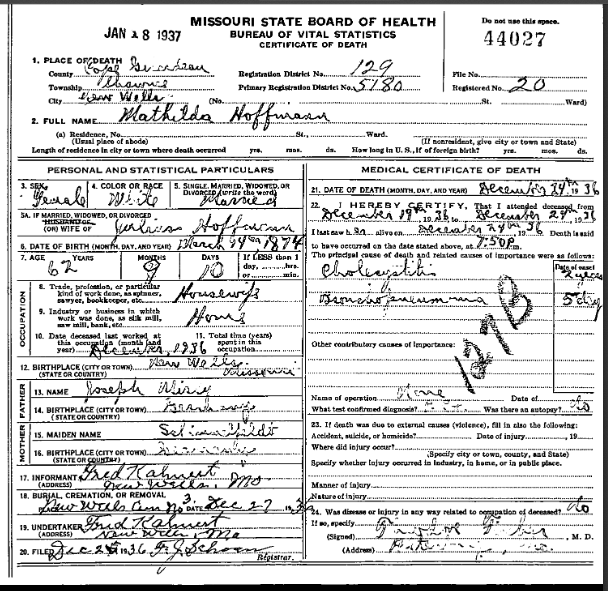 JAN 18 1937
MISSOURI STATE BOARD OF HEALTH
BUREAU OF VITAL STATISTICS
CERTIFICATE OF DEATH
Do not use this space.
44027
1. PLACE OF DEATH
County Cape Girardeau Registration District No. 129 File No.
Township Shawnee Primary Registration District No. 5180 Registered No. 20
City New Wells (No. St. Ward)
2. FULL NAME Mathilda Hoffmann
(a) Residence, No. St. Ward.
(Usual place of abode) (If nonresident, give city or town and State)
Length of residence in city or town where death occurred yrs. mos. ds. How long in U. S., if of foreign birth? yrs. mos. ds.
PERSONAL AND STATISTICAL PARTICULARS
3. SEX Female 4. COLOR OR RACE White 5. SINGLE, MARRIED, WIDOWED, OR DIVORCED (write the word) Married
5A. IF MARRIED, WIDOWED, OR DIVORCED
HUSBAND OF
(OR) WIFE OF Hoffmann
6. DATE OF BIRTH (MONTH, DAY, AND YEAR) March 14th 1874
7. AGE YEARS 62 MONTHS 9 DAYS 10 If LESS than 1 day, hrs. or min.
OCCUPATION
8. Trade, profession, or particular kind of work done, as spinner, sawyer, bookkeeper, etc. Housewife
9. Industry or business in which work was done, as silk mill, saw mill, bank, etc. Home
10. Date deceased last worked at this occupation (month and year) December, 1936
11. Total time (years) spent in this occupation
12. BIRTHPLACE (CITY OR TOWN) New Wells
(STATE OR COUNTRY) Missouri
FATHER
13. NAME Joseph
14. BIRTHPLACE (CITY OR TOWN) Germany
(STATE OR COUNTRY)
MOTHER
15. MAIDEN NAME
16. BIRTHPLACE (CITY OR TOWN)
(STATE OR COUNTRY)
17. INFORMANT Fred Kahnert
(ADDRESS) New Wells, Mo
18. BURIAL, CREMATION, OR REMOVAL
New Wells Cem No 3. DATE Dec 27 1936
19. UNDERTAKER Fred Kahnert
(ADDRESS) New Wells, Mo
20. FILED Dec 1936 F. J. Schoen
Registrar.
MEDICAL CERTIFICATE OF DEATH
21. DATE OF DEATH (MONTH, DAY, AND YEAR) December 24th 36
22. I HEREBY CERTIFY, That I attended deceased from
December 19th, 1936, to December 24th, 1936
I last saw her alive on December 24th 36 Death is said
to have occurred on the date stated above, at 7:50 P.m.
The principal cause of death and related causes of importance were as follows:
Date of onset
Cholecystitis 2 years
Bronchopneumonia 5 dy
127B
Other contributory causes of importance:
Name of operation None Date of
What test confirmed diagnosis? Was there an autopsy? No
23. If death was due to external causes (violence), fill in also the following:
Accident, suicide, or homicide? Date of injury 19
Where did injury occur?
(Specify city or town, county, and State)
Specify whether injury occurred in industry, in home, or in public place.
Manner of injury
Nature of injury
24. Was disease or injury in any way related to occupation of deceased? No
If so, specify
(Signed) M. D.
(Address)